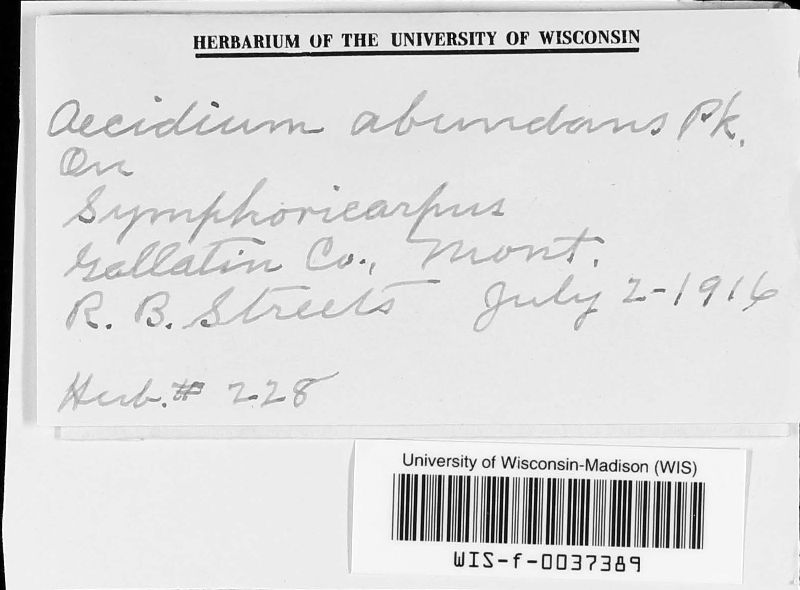 HERBARIUM OF THE UNIVERSITY OF WISCONSIN
Aecidium abundans Pk.
On
Symphoricarpus
Gallatin Co., Mont.
R. B. Streets July 2-1916
Herb. # 228
University of Wisconsin-Madison (WIS)
WIS-f-0037389